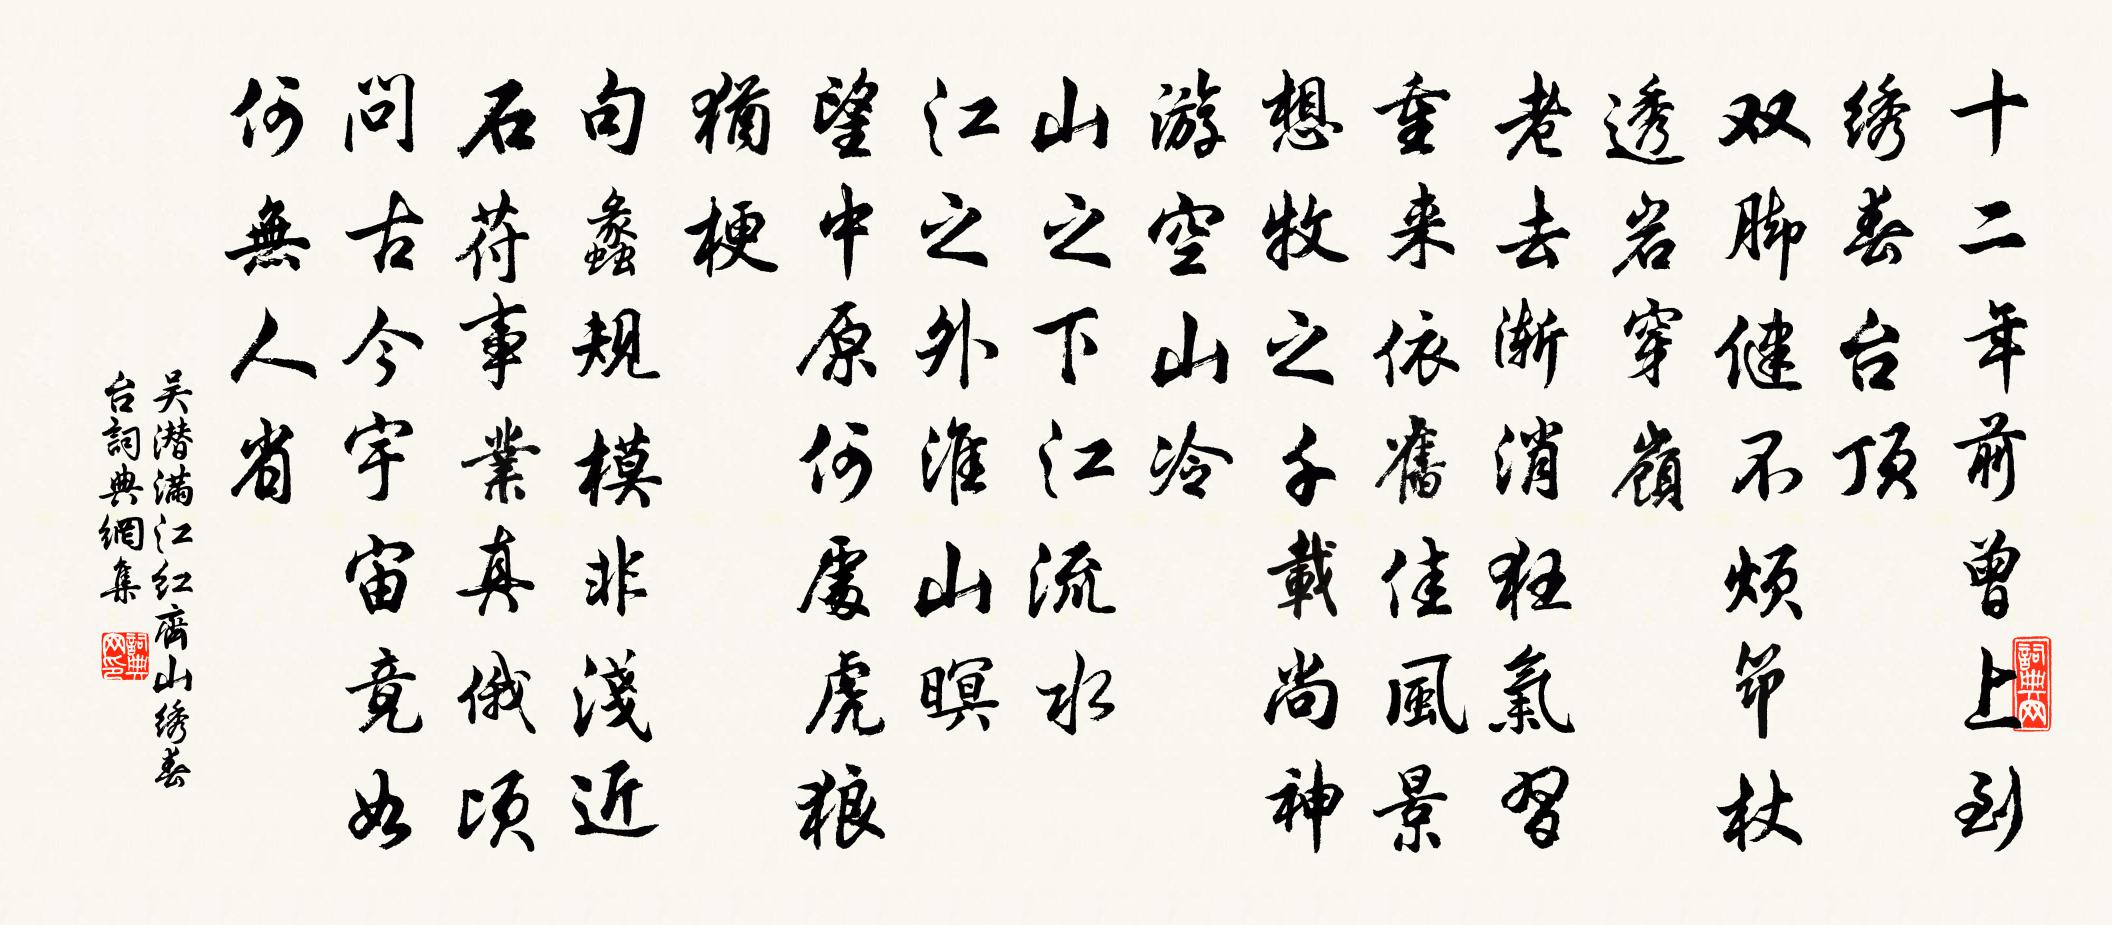 十二年前曾上到
绣春台顶
双脚健不烦笻杖
透岩穿嶺
老去渐消狂氣習
重来依舊佳風景
想牧之千載尚神
游空山冷
山之下江流水
江之外淮山暝
望中原何處虎狼
猶梗
句蠡規模非淺近
石苻事業真俄頃
問古今宇宙竟如
何無人省
吴潜满江红齊山绣春
台詞典網集
詞典网
詞典网印